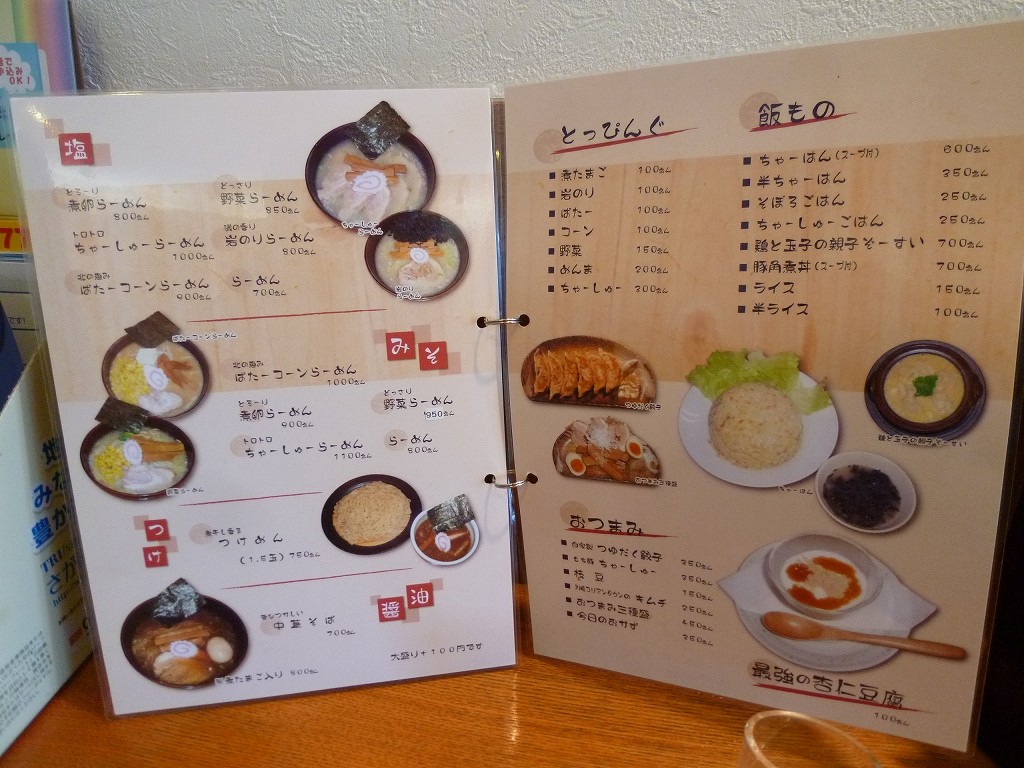 塩
とろ～り
煮卵らーめん
800えん
どっさり
野菜らーめん
850えん
トロトロ
ちゃーしゅーらーめん
1000えん
磯の香り
岩のりらーめん
800えん
北の恵み
ばたーコーンらーめん
900えん
らーめん
700えん
ちゃーしゅー
らーめん
岩のり
らーめん
ばたーコーンらーめん
みそ
北の恵み
ばたーコーンらーめん
1000えん
とろ～り
煮卵らーめん
900えん
どっさり
野菜らーめん
950えん
トロトロ
ちゃーしゅーらーめん
1100えん
らーめん
800えん
野菜らーめん
つけ
煮干し香る
つけめん
(1.5玉) 750えん
醤油
昔なつかしい
中華そば
700えん
煮たまご入り 800えん
大盛り+100円です
とっぴんぐ
■ 煮たまご 100えん
■ 岩のり 100えん
■ ばたー 100えん
■ コーン 100えん
■ 野菜 150えん
■ めんま 200えん
■ ちゃーしゅー 300えん
飯もの
■ ちゃーはん(スープ付) 600えん
■ 半ちゃーはん 350えん
■ そぼろごはん 250えん
■ ちゃーしゅーごはん 250えん
■ 鶏と玉子の親子ぞーすい 700えん
■ 豚角煮丼(スープ付) 700えん
■ ライス 150えん
■ 半ライス 100えん
つゆだく餃子
おつまみ三種盛
ちゃーはん
鶏と玉子の親子ぞーすい
おつまみ
■ 自家製 つゆだく餃子 350えん
■ もち豚 ちゃーしゅー 350えん
■ 枝豆 150えん
■ 川崎コリアンタウンの キムチ 250えん
■ おつまみ三種盛 450えん
■ 今日のおかず 350えん
最強の杏仁豆腐
100えん
OK!
77